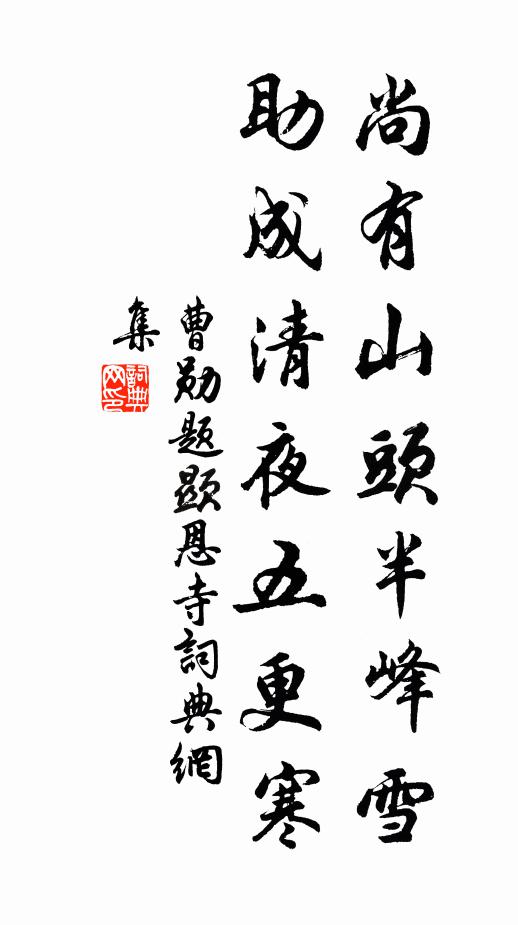 尚有山頭半峰雪
助成清夜五更寒
曹勛題顯恩寺詞典網
集
詞典网印